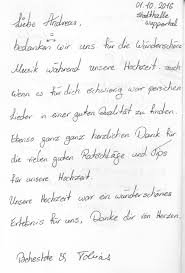 01.10.2016
Stadthalle
Wuppertal
Liebe Andreas,
bedanken wir uns für die Wunderschöne
Musik während unsere Hochzeit auch
wenn es für dich schwierig war persichen
Lieder in einer guten Qualität zu finden.
Ebenso ganz ganz herzlichen Dank für
die vielen guten Ratschläge und Tips
für unsere Hochzeit.
Unsere Hochzeit war ein wunderschönes
Erlebnis für uns, Danke dir von Herzen.
Tobias